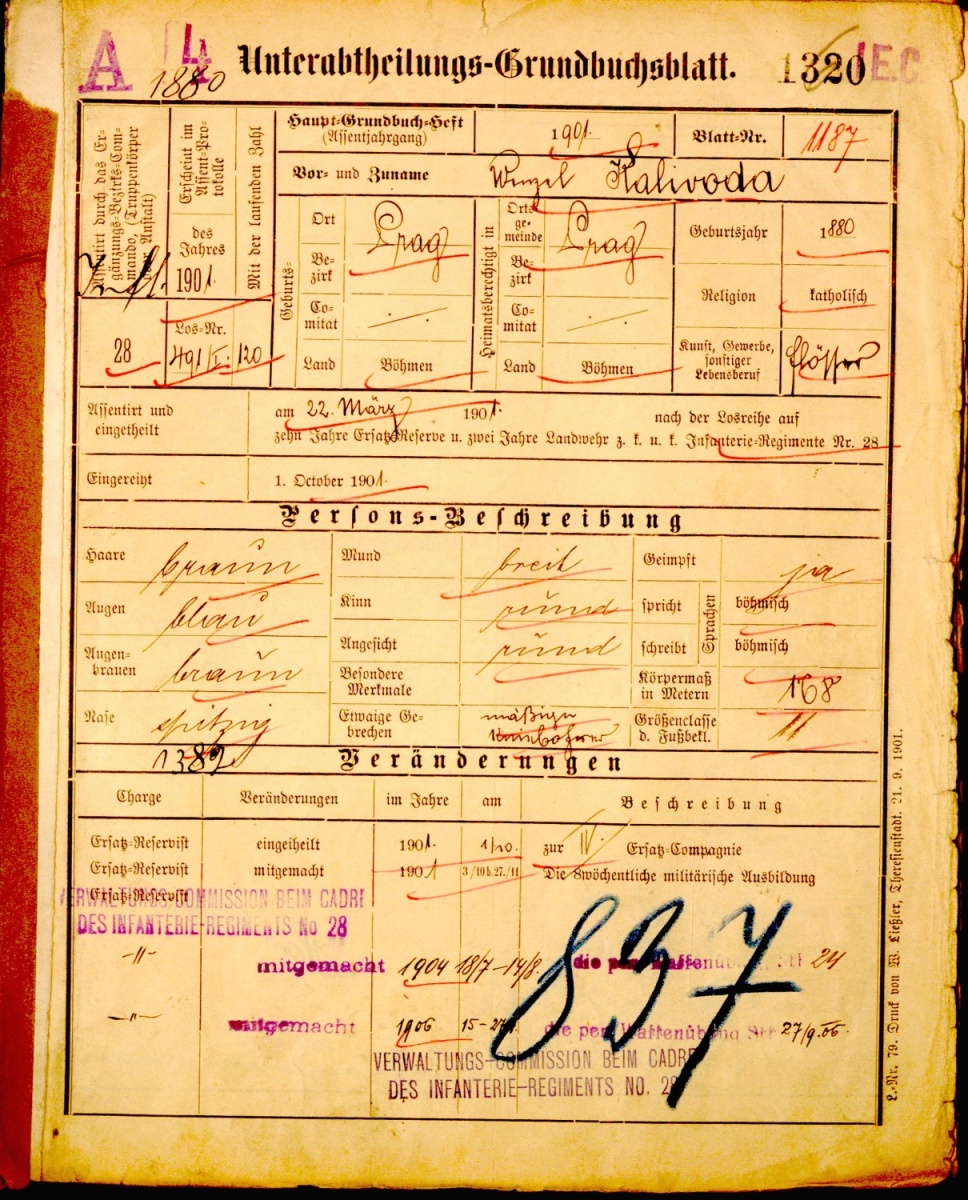 A 4 1880 Unterabtheilungs-Grundbuchsblatt. 1320 E.C.
Assentirt durch das Ergänzungs-Bezirks-Commando, (Truppenkörper oder Anstalt)
Inft.
28
Erscheint im Assent-Protokolle
des Jahres 1901.
Los-Nr.
491/I.
Mit der laufenden Zahl
120
Haupt-Grundbuch-Heft (Assentjahrgang) 1901. Blatt-Nr. 1187
Vor- und Zuname Wenzel Kaliwoda
Geburts-
Ort Prag
Bezirk
Comitat ./.
Land Böhmen
Heimatsberechtigt in
Ortsgemeinde Prag
Bezirk
Comitat ./.
Land Böhmen
Geburtsjahr 1880
Religion katholisch
Kunst, Gewerbe, sonstiger Lebensberuf Flösser
Assentirt und eingetheilt
am 22. März 1901. nach der Losreihe auf
zehn Jahre Ersatz-Reserve u. zwei Jahre Landwehr z. k. u. k. Infanterie-Regimente Nr. 28
Eingereiht 1. October 1901.
Persons-Beschreibung
Haare braun
Augen blau
Augenbrauen braun
Nase spitzig
Mund breit
Kinn rund
Angesicht rund
Besondere Merkmale
Etwaige Gebrechen mäßigen
Geimpft ja
Sprachen
spricht böhmisch
schreibt böhmisch
Körpermaß in Metern 168
Größenclasse d. Fußbekl. 11
1389 Veränderungen
Charge Veränderungen im Jahre am Beschreibung
Ersatz-Reservist eingeiheilt 1901. 1/10. zur IV. Ersatz-Compagnie
Ersatz-Reservist mitgemacht 1901 3/10 b. 27./11 Die 8wöchentliche militärische Ausbildung
Ersatz-Reservist
VERWALTUNGS-COMMISSION BEIM CADRE
DES INFANTERIE-REGIMENTS No 28
-"- mitgemacht 1904 18/7-14/8. die per. Waffenübung 24
-"- mitgemacht 1906 15-27/9. die per. Waffenübung 27/9.06.
837
VERWALTUNGS-COMMISSION BEIM CADRE
DES INFANTERIE-REGIMENTS NO. 28
L.-Nr. 79. Druck von W. Ließler, Theresienstadt. 21. 9. 1901.